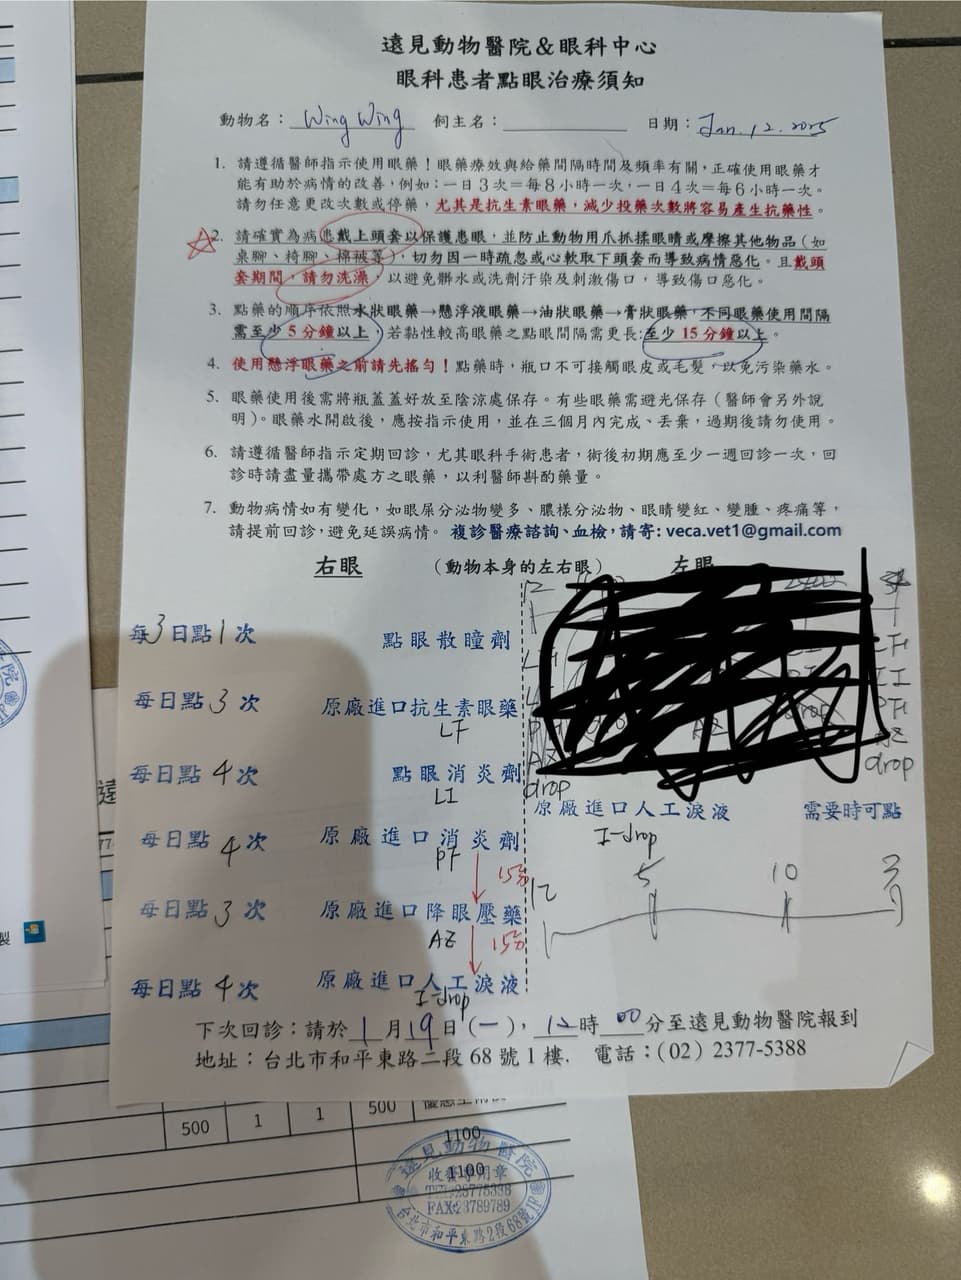 遠見動物醫院＆眼科中心
眼科患者點眼治療須知
動物名：Wing Wing 飼主名： 日期：Jan. 12. 2025
1. 請遵循醫師指示使用眼藥！眼藥療效與給藥間隔時間及頻率有關，正確使用眼藥才
能有助於病情的改善，例如：一日3次＝每8小時一次，一日4次＝每6小時一次。
請勿任意更改次數或停藥，尤其是抗生素眼藥，減少投藥次數將容易產生抗藥性。
2. 請確實為病患戴上頭套以保護患眼，並防止動物用爪抓揉眼睛或摩擦其他物品（如
桌腳、椅腳、棉被等），切勿因一時疏忽或心軟取下頭套而導致病情惡化。且戴頭
套期間，請勿洗澡，以避免髒水或洗劑汙染及刺激傷口，導致傷口惡化。
3. 點藥的順序依照水狀眼藥→懸浮液眼藥→油狀眼藥→膏狀眼藥，不同眼藥使用間隔
需至少5分鐘以上，若黏性較高眼藥之點眼間隔需更長：至少15分鐘以上。
4. 使用懸浮眼藥之前請先搖勻！點藥時，瓶口不可接觸眼皮或毛髮，以免污染藥水。
5. 眼藥使用後需將瓶蓋蓋好放至陰涼處保存。有些眼藥需避光保存（醫師會另外說
明）。眼藥水開啟後，應按指示使用，並在三個月內完成、丟棄，過期後請勿使用。
6. 請遵循醫師指示定期回診，尤其眼科手術患者，術後初期應至少一週回診一次，回
診時請盡量攜帶處方之眼藥，以利醫師斟酌藥量。
7. 動物病情如有變化，如眼屎分泌物變多、膿樣分泌物、眼睛變紅、變腫、疼痛等，
請提前回診，避免延誤病情。複診醫療諮詢、血檢，請寄: veca.vet1@gmail.com
右眼 （動物本身的左右眼） 左眼
每3日點1次 點眼散瞳劑
每日點3次 原廠進口抗生素眼藥
LF
每日點4次 點眼消炎劑
LI
drop drop
原廠進口人工淚液 需要時可點
I-drop
每日點4次 原廠進口消炎劑
PF
15分
12 5 10 3
每日點3次 原廠進口降眼壓藥
AZ 15分
每日點4次 原廠進口人工淚液
I-drop
下次回診：請於1月19日（一），12時00分至遠見動物醫院報到
地址：台北市和平東路二段68號1樓. 電話：(02) 2377-5388
500 1 1 500
1100
1100
遠見動物醫院
收發專用章
TEL:23775338
FAX:23789789
台北市和平東路2段68號1F